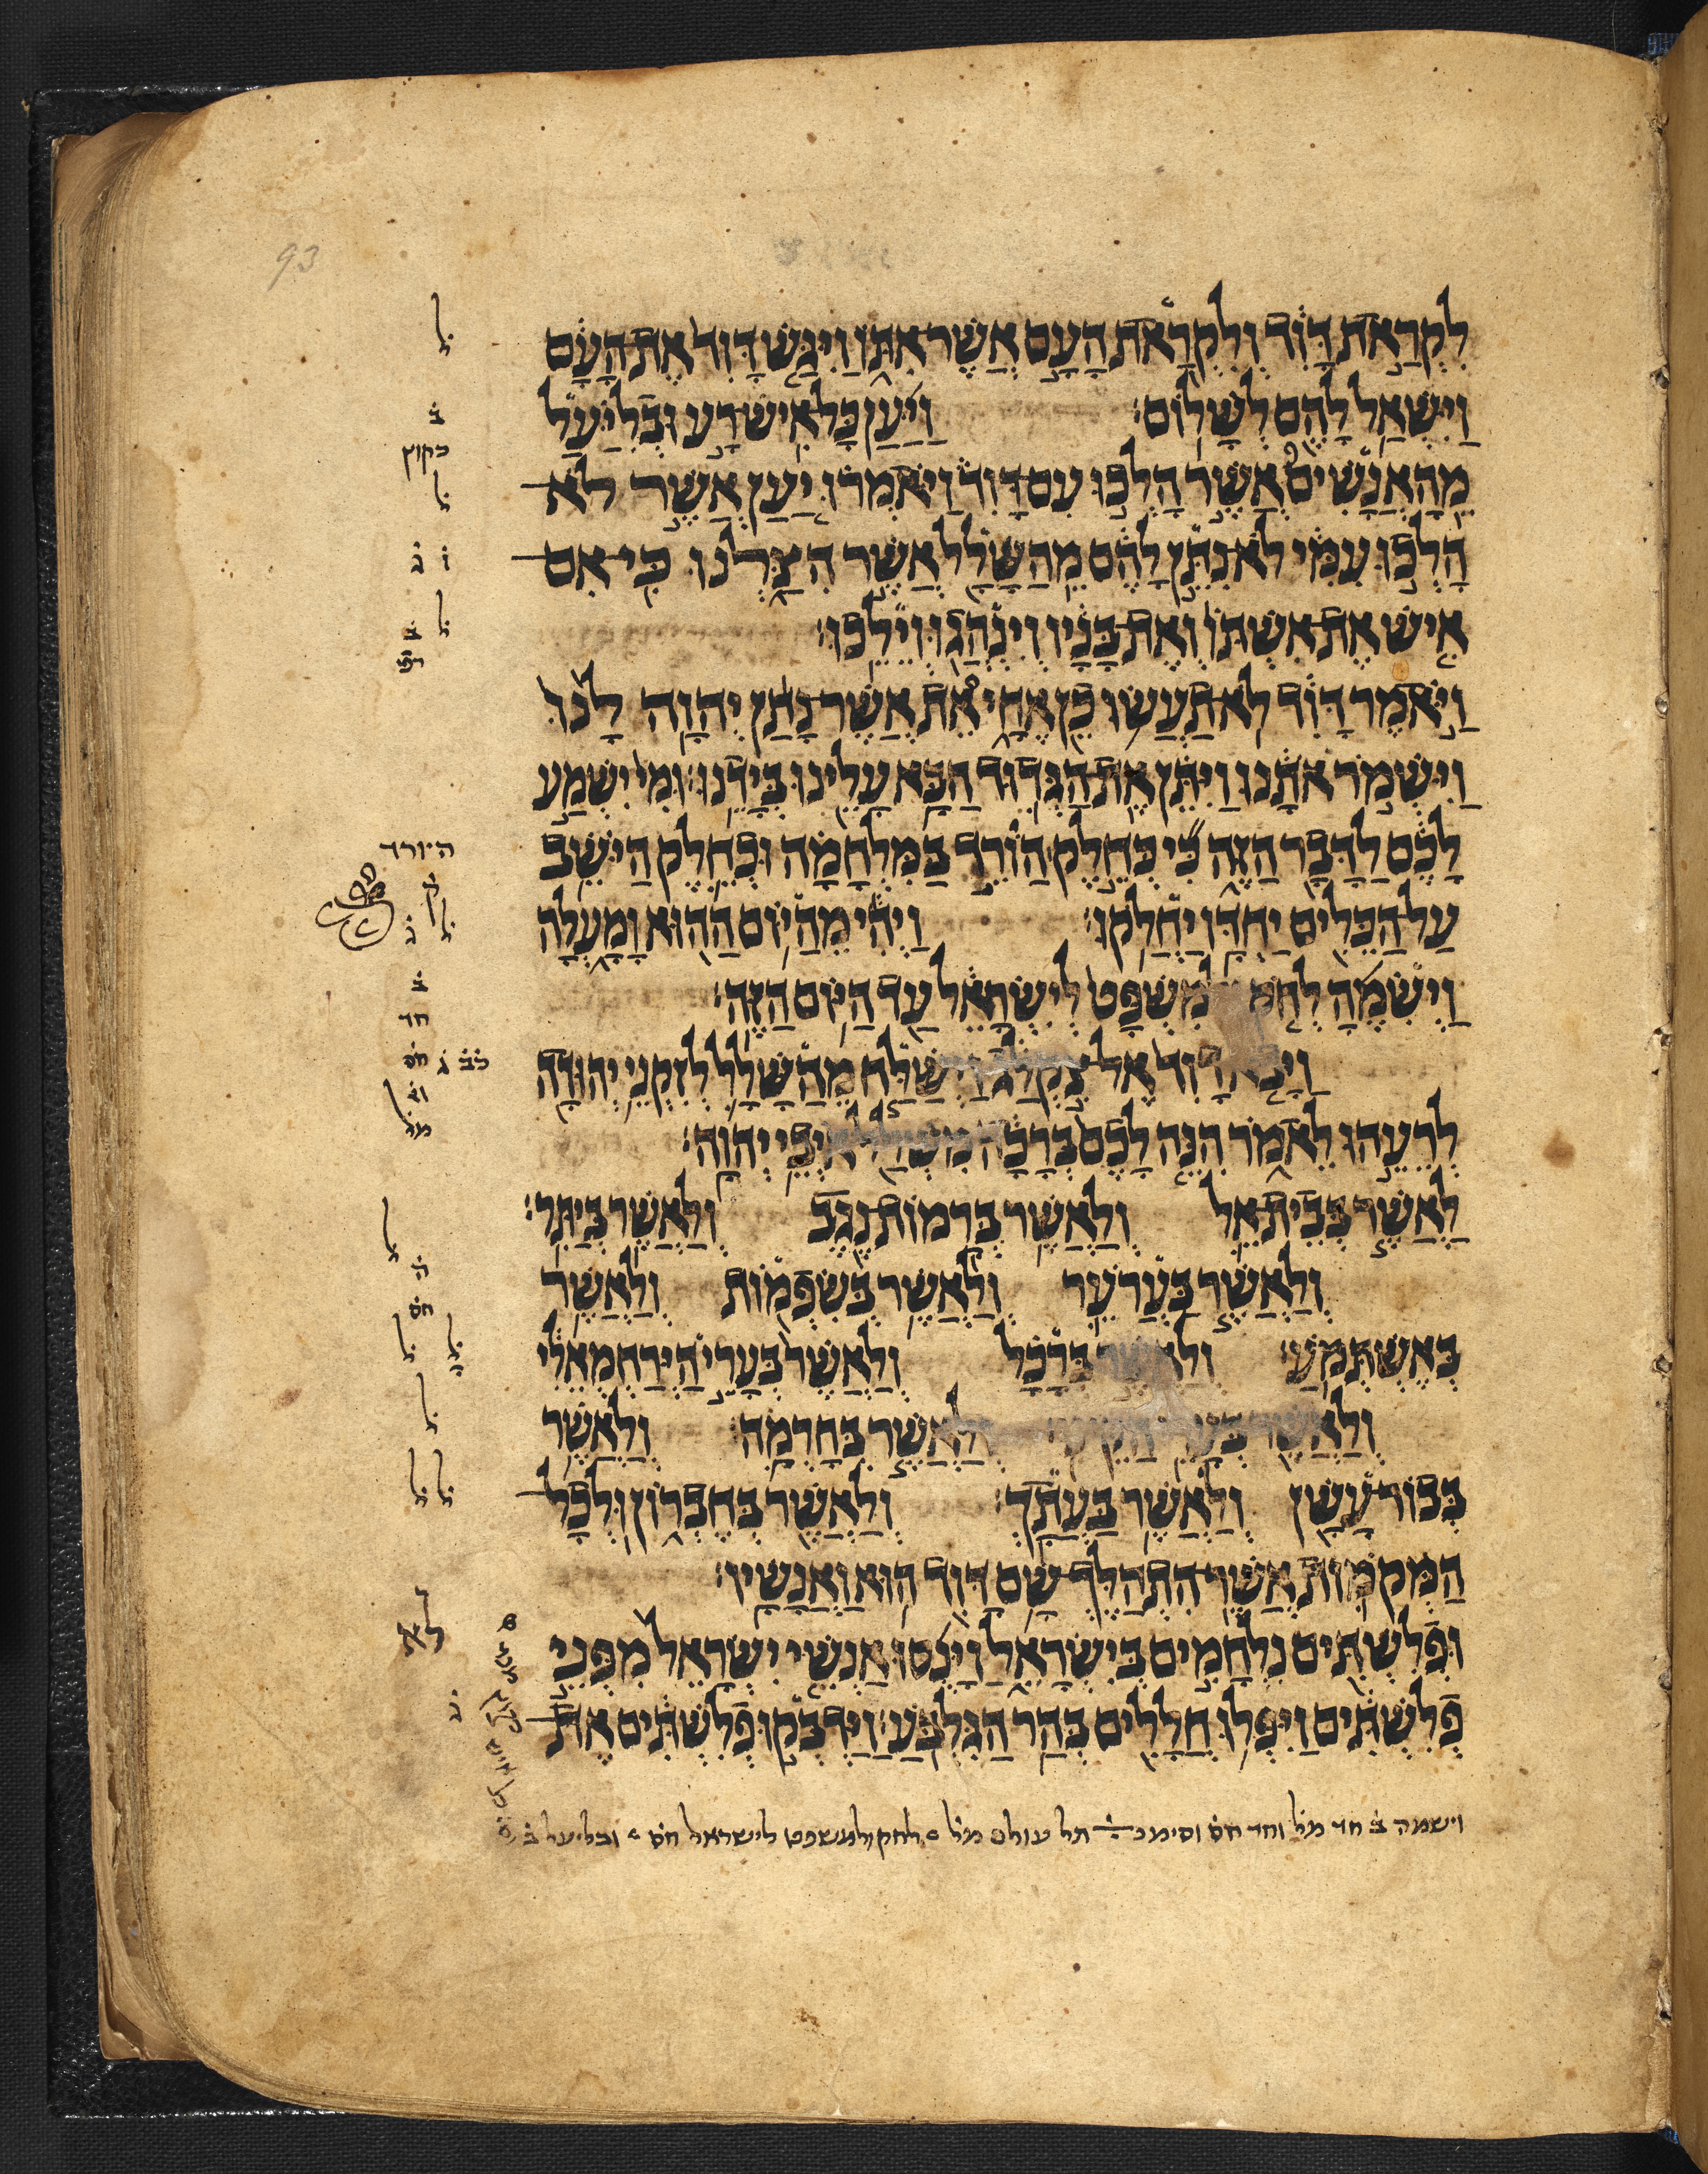 93
לִקְרַאת דָּוִד וְלִקְרַאת הָעָם אֲשֶׁר אִתּוֹ וַיִּגַּשׁ דָּוִד אֶת הָעָם
וַיִּשְׁאַל לָהֶם לְשָׁלוֹם׃ וַיַּעַן כָּל אִישׁ רָע וּבְלִיַּעַל
מֵהָאֲנָשִׁים אֲשֶׁר הָלְכוּ עִם דָּוִד וַיֹּאמְרוּ יַעַן אֲשֶׁר לֹא
הָלְכוּ עִמִּי לֹא נִתֵּן לָהֶם מֵהַשָּׁלָל אֲשֶׁר הִצַּלְנוּ כִּי אִם
אִישׁ אֶת אִשְׁתּוֹ וְאֶת בָּנָיו וְיִנְהֲגוּ וְיֵלֵכוּ׃
וַיֹּאמֶר דָּוִד לֹא תַעֲשׂוּ כֵן אֶחָי אֵת אֲשֶׁר נָתַן יְהוָה לָנוּ
וַיִּשְׁמֹר אֹתָנוּ וַיִּתֵּן אֶת הַגְּדוּד הַבָּא עָלֵינוּ בְּיָדֵנוּ׃ וּמִי יִשְׁמַע
לָכֶם לַדָּבָר הַזֶּה כִּי כְּחֵלֶק הַוֹרֵד בַּמִּלְחָמָה וּכְחֵלֶק הַיֹּשֵׁב
עַל הַכֵּלִים יַחְדָּו יַחֲלֹקוּ׃ וַיְהִי מֵהַיּוֹם הַהוּא וָמָעְלָה
וַיְשִׂמֶהָ לְחֹק מִשְׁפָּט לְיִשְׂרָאֵל עַד הַיּוֹם הַזֶּה׃
וַיָּבֹא דָוִד אֶל צִקְלַג וַיְשַׁלַּח מֵהַשָּׁלָל לְזִקְנֵי יְהוּדָה
לְרֵעֵהוּ לֵאמֹר הִנֵּה לָכֶם בְּרָכָה מִשְּׁלַל אֹיְבֵי יְהוָה׃
לַאֲשֶׁר בְּבֵית אֵל וְלַאֲשֶׁר בְּרָמוֹת נֶגֶב וְלַאֲשֶׁר בְּיַתִּר׃
וְלַאֲשֶׁר בַּעֲרֹעֵר וְלַאֲשֶׁר בְּשִׂפְמוֹת וְלַאֲשֶׁר
בְּאֶשְׁתְּמֹעַ׃ וְלַאֲשֶׁר בְּרָכָל וְלַאֲשֶׁר בְּעָרֵי הַיְּרַחְמְאֵלִי
וְלַאֲשֶׁר בְּעָרֵי הַקֵּינִי׃ וְלַאֲשֶׁר בְּחָרְמָה וְלַאֲשֶׁר
בְּבוֹר עָשָׁן וְלַאֲשֶׁר בַּעֲתָךְ׃ וְלַאֲשֶׁר בְּחֶבְרוֹן וּלְכָל
הַמְּקֹמוֹת אֲשֶׁר הִתְהַלֶּךְ שָׁם דָּוִד הוּא וַאֲנָשָׁיו׃
וּפְלִשְׁתִּים נִלְחָמִים בְּיִשְׂרָאֵל וַיָּנֻסוּ אַנְשֵׁי יִשְׂרָאֵל מִפְּנֵי
פְלִשְׁתִּים וַיִּפְּלוּ חֲלָלִים בְּהַר הַגִּלְבֹּעַ׃ וַיַּדְבְּקוּ פְלִשְׁתִּים אֶת
וישמה ב חד מל וחד חס וסימנ תל עולם מל לחק ולמשפט לישראל חס ובליעל ב
היורד
ק